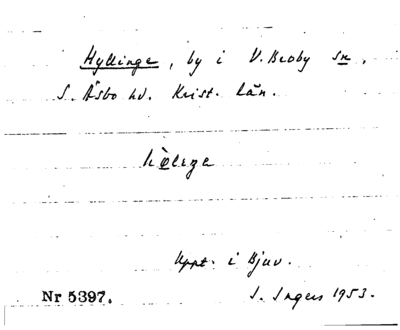 Hyllinge, by i V. Broby sn,
S. Åsbo hd. Krist. län.
Uppt. i Bjuv.
Nr 5397. S. Ingers 1953.